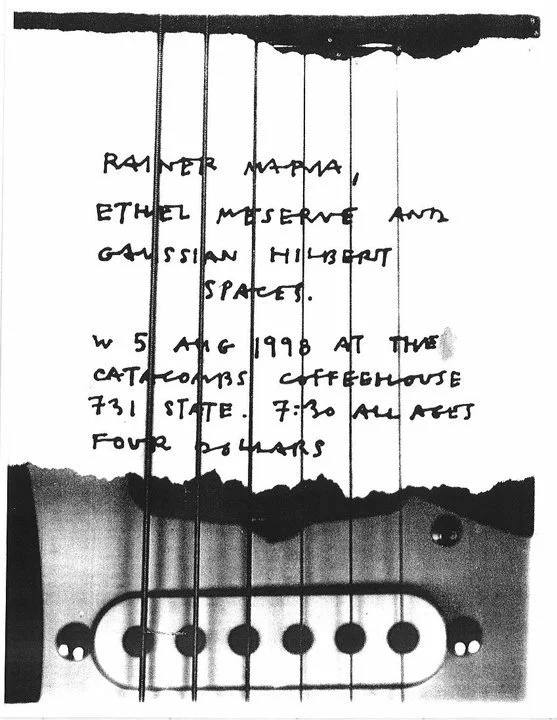 RAINER MARIA,
ETHEL MESERVE AND
GAUSSIAN HILBERT
SPACES.
W 5 AUG 1998 AT THE
CATACOMBS COFFEEHOUSE
731 STATE. 7:30 ALL AGES
FOUR DOLLARS